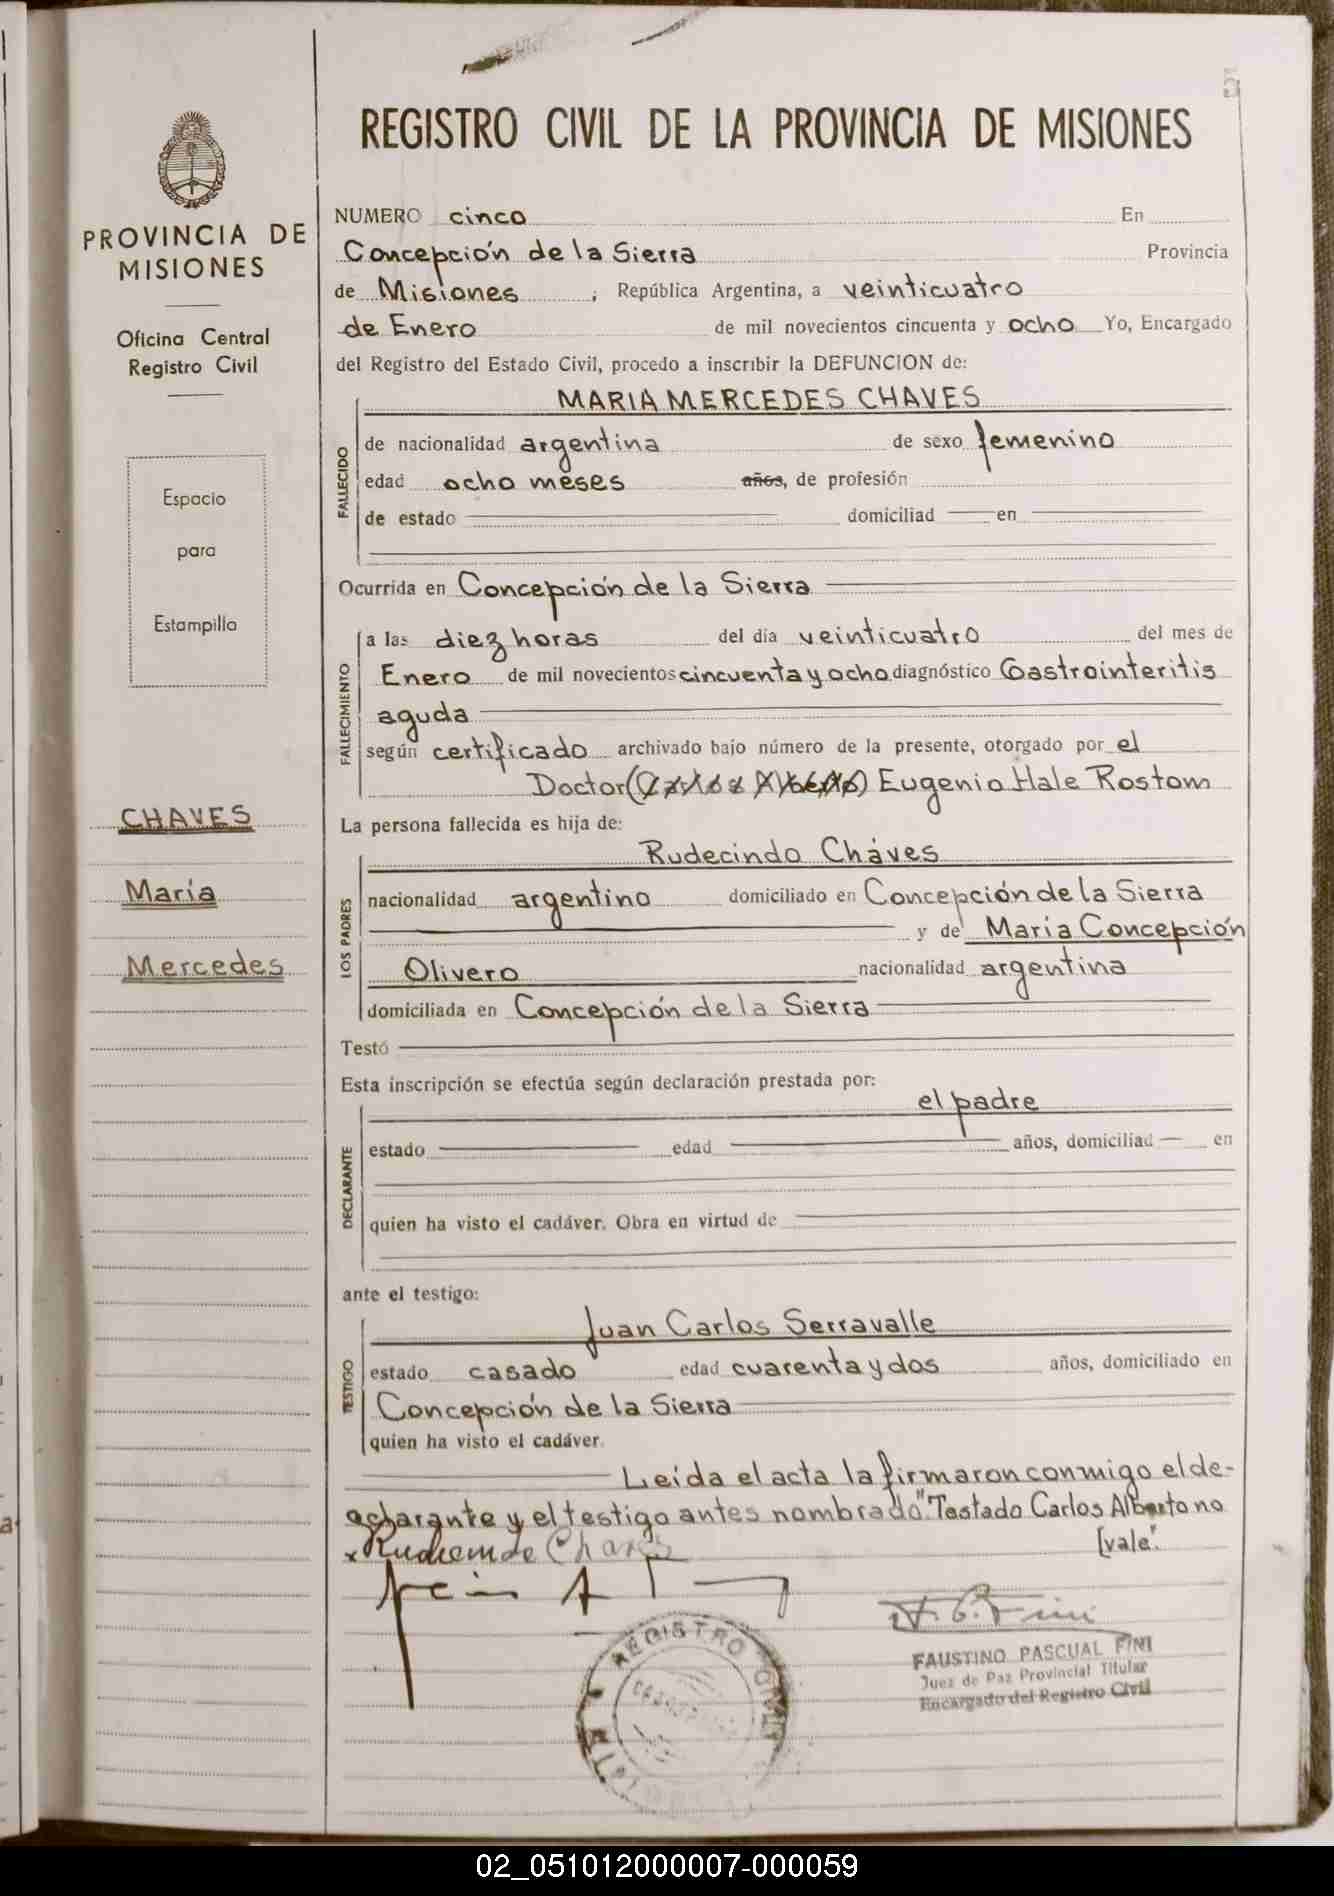 5
REGISTRO CIVIL DE LA PROVINCIA DE MISIONES
PROVINCIA DE
MISIONES
Oficina Central
Registro Civil
Espacio
para
Estampilla
CHAVES
María
Mercedes
NUMERO cinco En
Concepción de la Sierra Provincia
de Misiones ; República Argentina, a veinticuatro
de Enero de mil novecientos cincuenta y ocho Yo, Encargado
del Registro del Estado Civil, procedo a inscribir la DEFUNCION de:
MARIA MERCEDES CHAVES
FALLECIDO
de nacionalidad argentina de sexo femenino
edad ocho meses años, de profesión
de estado domiciliad en
Ocurrida en Concepción de la Sierra
FALLECIMIENTO
a las diez horas del día veinticuatro del mes de
Enero de mil novecientos cincuenta y ocho diagnóstico Gastrointeritis
aguda
según certificado archivado bajo número de la presente, otorgado por el
Doctor (Carlos Alberto) Eugenio Hale Rostom
La persona fallecida es hija de:
Rudecindo Cháves
LOS PADRES
nacionalidad argentino domiciliado en Concepción de la Sierra
y de María Concepción
Olivero nacionalidad argentina
domiciliada en Concepción de la Sierra
Testó
Esta inscripción se efectúa según declaración prestada por:
el padre
DECLARANTE
estado edad años, domiciliad en
quien ha visto el cadáver. Obra en virtud de
ante el testigo:
Juan Carlos Serravalle
TESTIGO
estado casado edad cuarenta y dos años, domiciliado en
Concepción de la Sierra
quien ha visto el cadáver.
Leída el acta la firmaron conmigo el de-
clarante y el testigo antes nombrado "Testado Carlos Alberto no
vale".
FAUSTINO PASCUAL FINI
Juez de Paz Provincial Titular
Encargado del Registro Civil
REGISTRO CIVIL
02_051012000007-000059